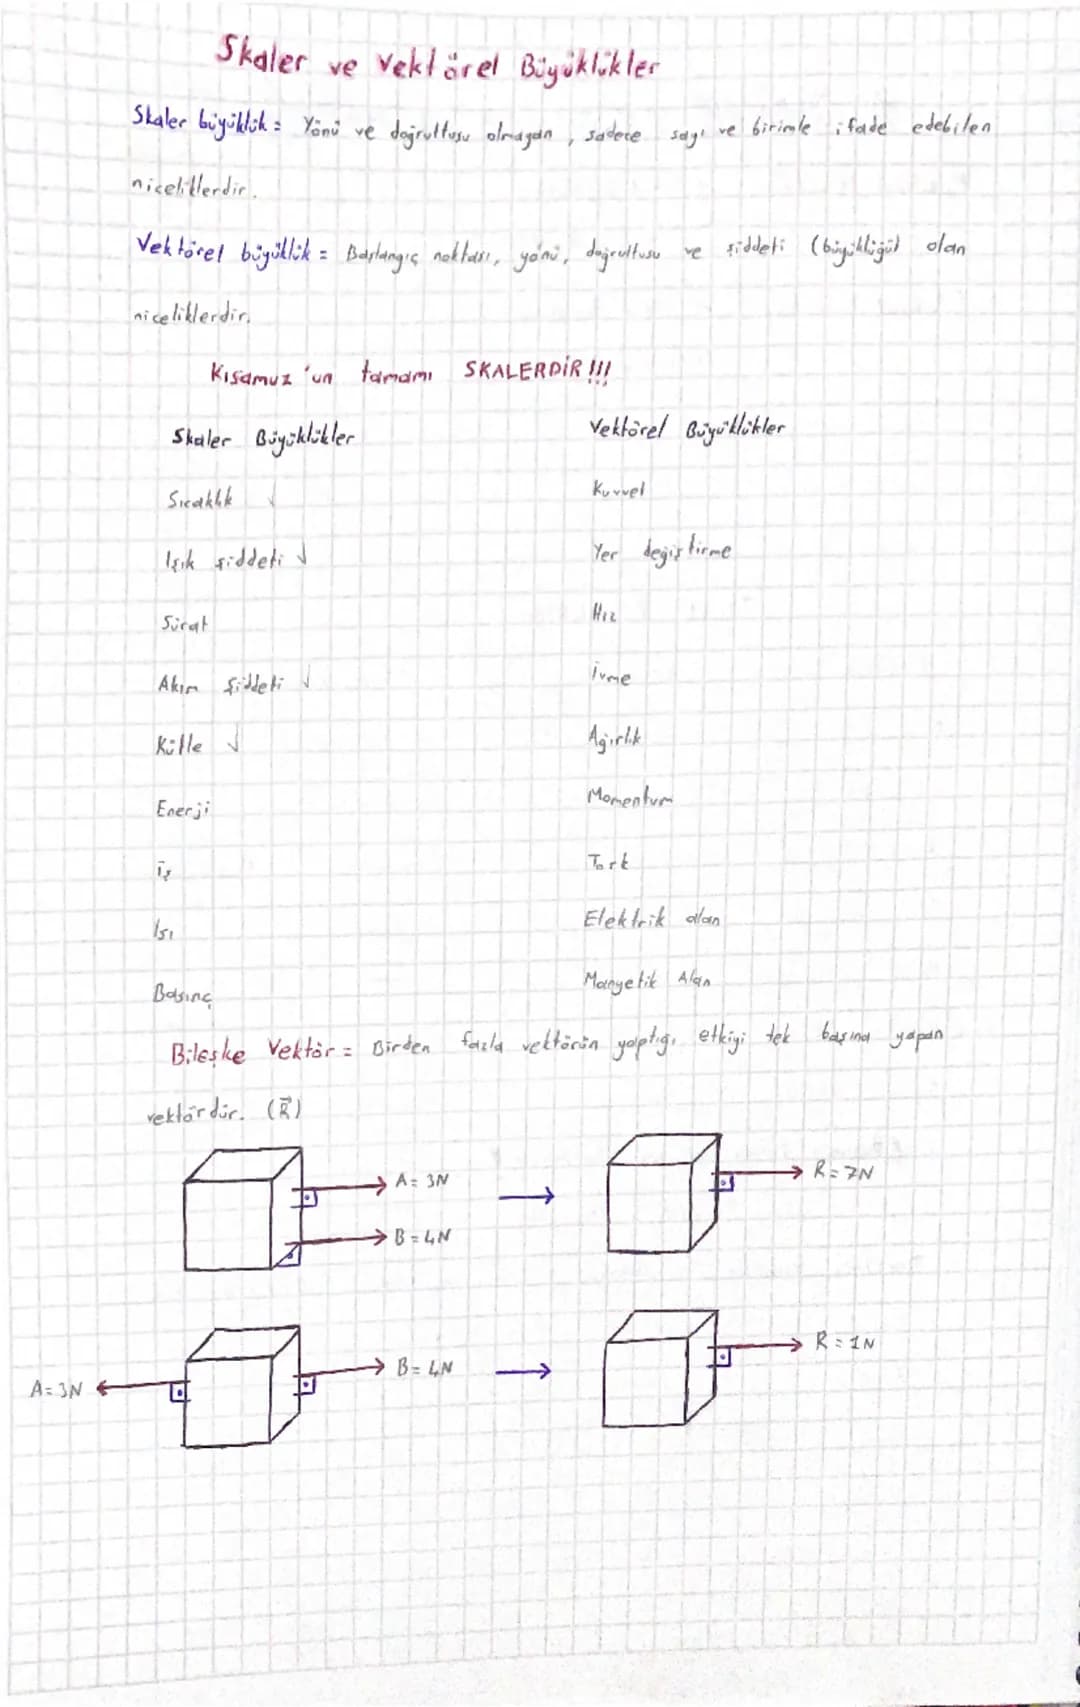 Skaler ve Vektörel Büyüklükler
Skaler büyüklük = Yönü ve doğrultusu olmayan, sadece sayı ve birimle ifade edebilen
niceliklerdir.
Vektörel büyüklük = Başlangıç noktası, yönü, doğrultusu ve şiddeti (büyüklüğü) olan
niceliklerdir.
Kısamuz'un tamamı SKALERDİR!!!
Skaler Büyüklükler Vektörel Büyüklükler
Sıcaklık ✓ Kuvvet
Işık şiddeti ✓ Yer değiştirme
Sürat Hız
Akım Şiddeti ✓ İvme
Kütle ✓ Ağırlık
Enerji Momentum
İş Tork
Isı Elektrik alan
Basınç Manyetik Alan
Bileşke Vektör = Birden fazla vektörün yaptığı etkiyi tek başına yapan
vektördür. (R⃗)
A = 3N → R = 7N
B = 4N
A = 3N B = 4N → R = 1N